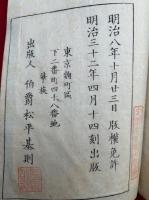 明治八年十月廿三日版權免許
明治三十二年四月十四刻出版
東京麹町區
下二番町四十八番地
華族
出版人 伯爵松平基則